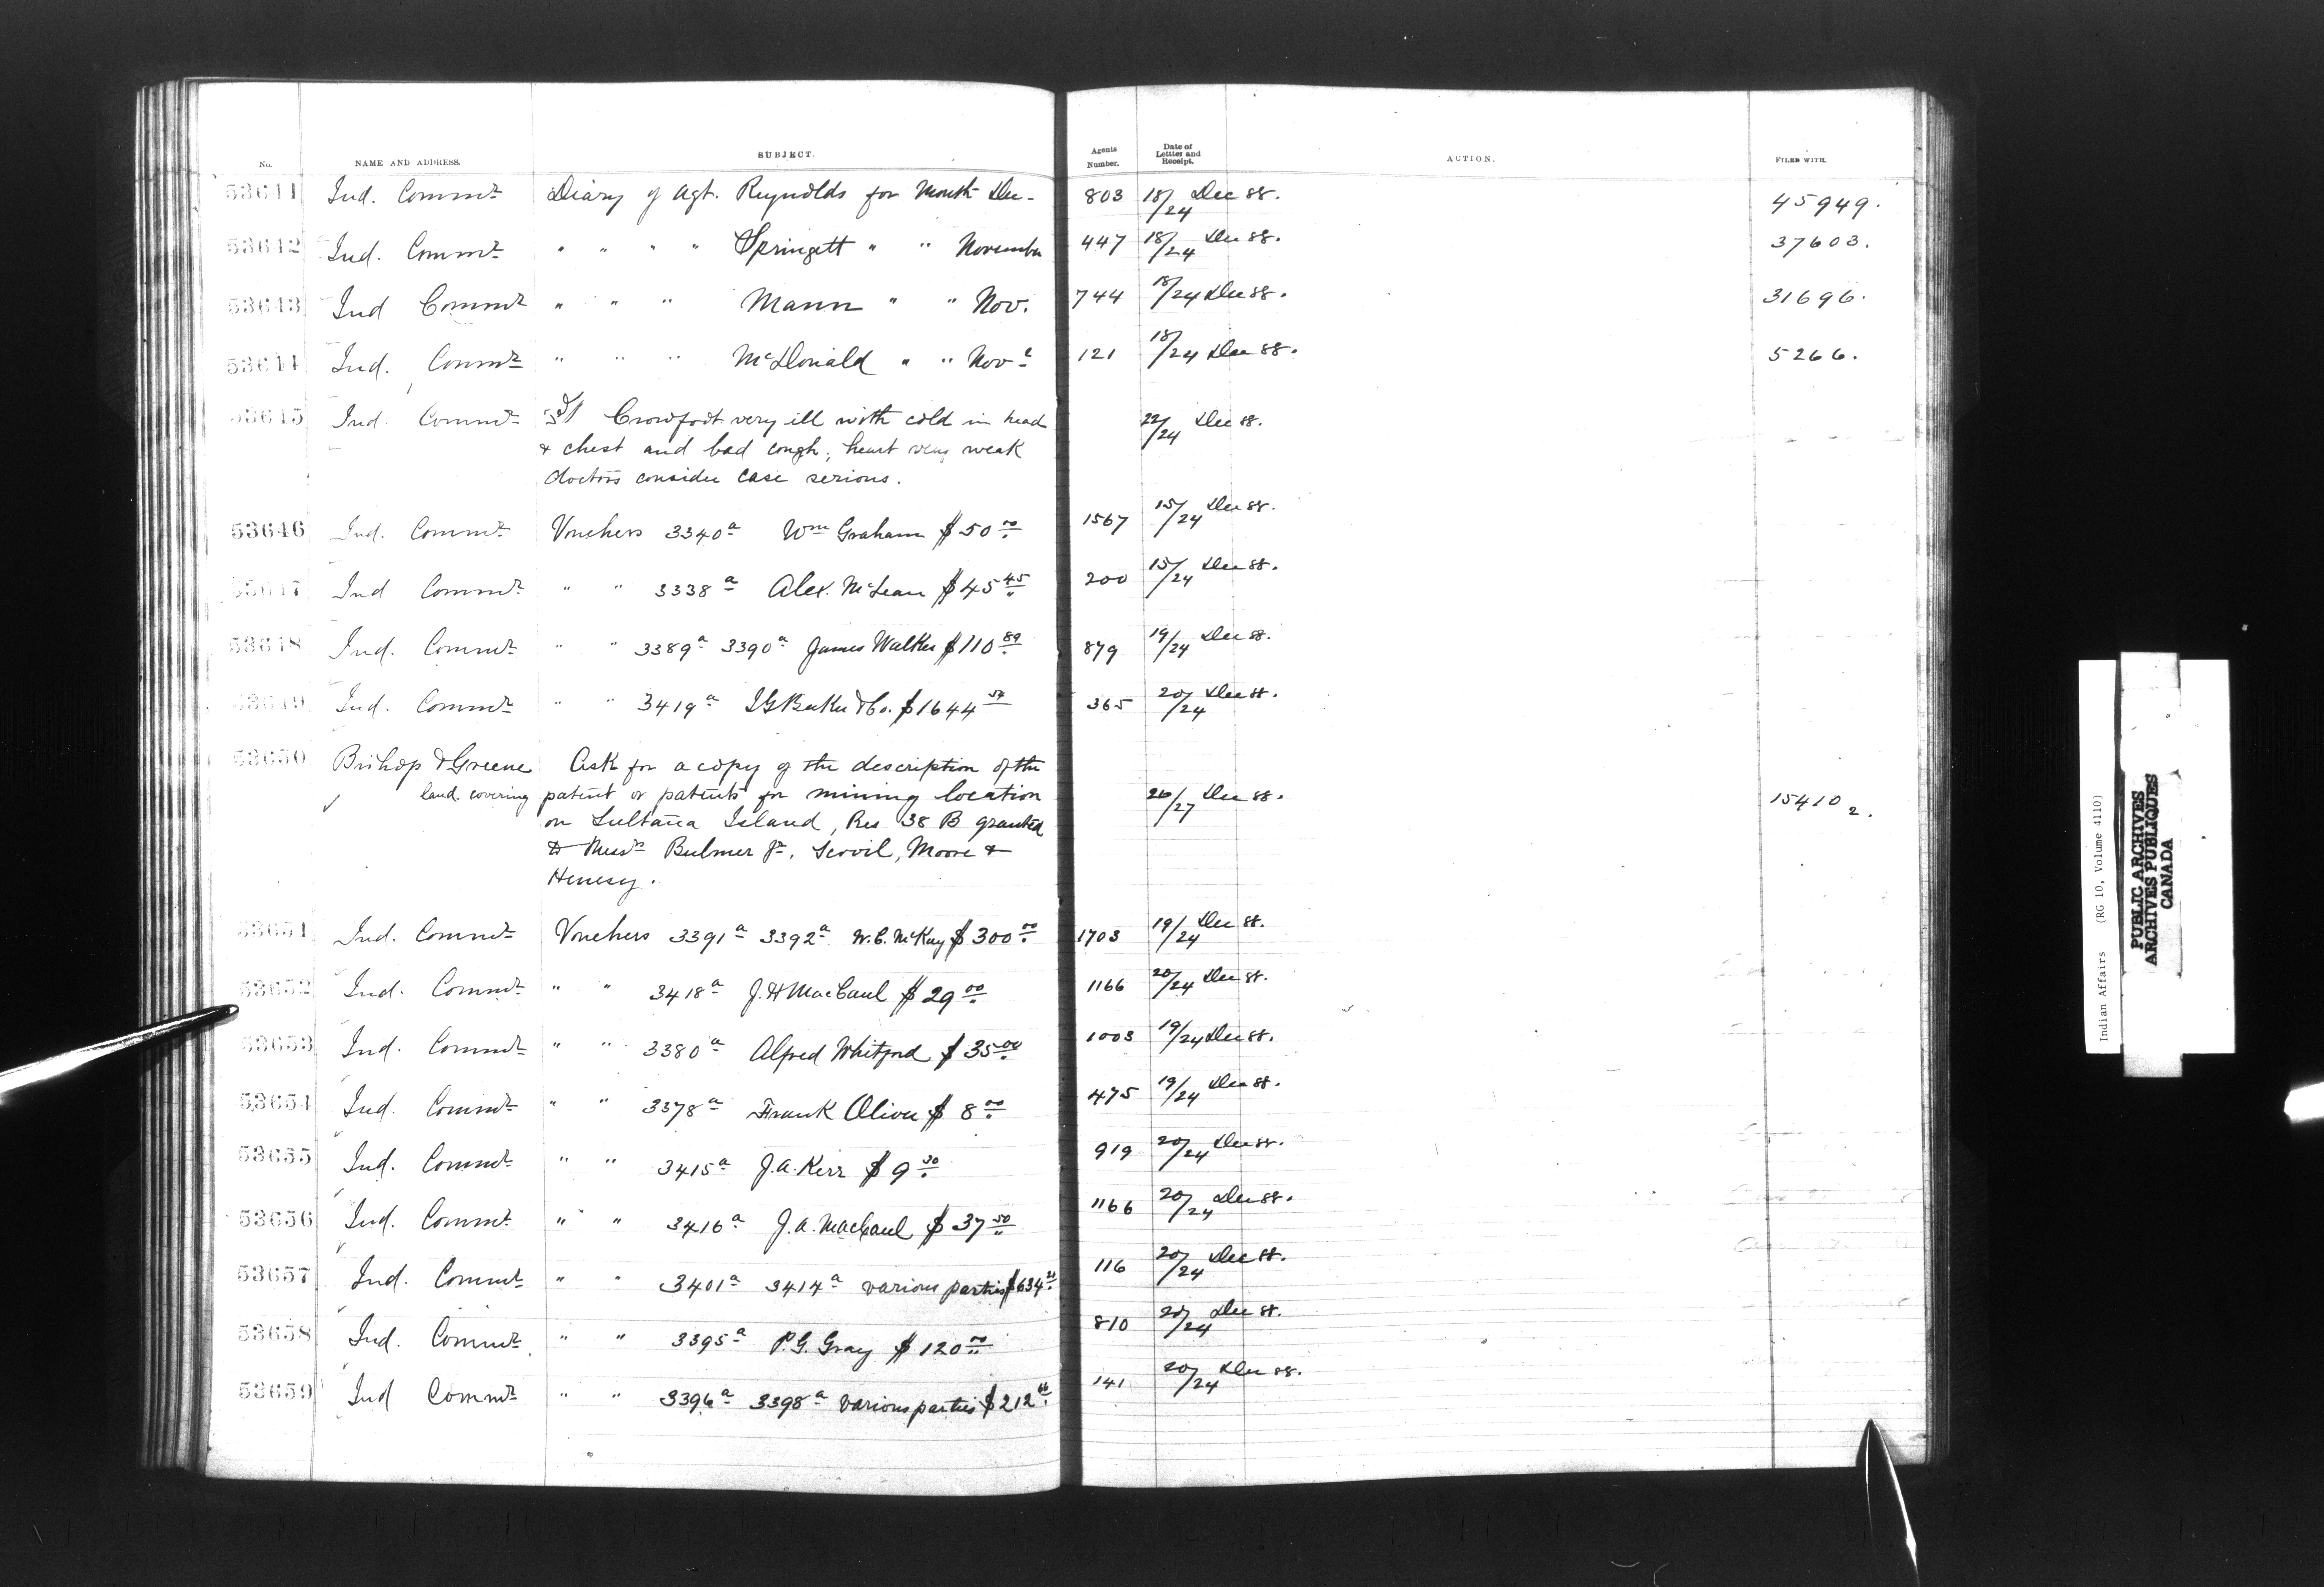 No. NAME AND ADDRESS. SUBJECT. Agents Number. Date of Letter and Receipt. ACTION. FILED WITH.
53641 Ind. Commr Diary of Agt. Reynolds for Month Dec. 803 18/24 Dec 88. 45949.
53642 Ind. Commr " " " " Springett " " November 447 18/24 Dec 88. 37603.
53643 Ind Commr " " " Mann " " Nov. 744 18/24 Dec 88. 31696.
53644 Ind. Commr " " " McDonald " " Novr 121 18/24 Dec 88. 5266.
53645 Ind. Commr Crowfoot very ill with cold in head 22/24 Dec 88.
& chest and bad cough; heart very weak
doctors consider case serious.
53646 Ind. Commr Vouchers 3340a Wm Graham $50.00 1567 15/24 Dec 88.
53647 Ind Commr " " 3338a Alex. McLean $45.45 200 15/24 Dec 88.
53648 Ind. Commr " " 3389a 3390a James Walker $110.89 879 19/24 Dec 88.
53649 Ind. Commr " " 3419a I G Baker & Co. $1644 54 365 20/24 Dec 88.
53650 Bishop & Greene Ask for a copy of the description of the
land covering patent or patents for mining location 26/27 Dec 88. 15410 2.
on Sultana Island, Res 38 B granted
to Messrs Bulmer Jr, Scovil, Moore &
Henesy.
53651 Ind. Commr Vouchers 3391a 3392a W.C. McKay $300.00 1703 19/24 Dec 88.
53652 Ind. Commr " " 3418a J. H MacCaul $29.00 1166 20/24 Dec 88.
53653 Ind. Commr " " 3380a Alfred Whitford $35.00 1003 19/24 Dec 88.
53654 Ind. Commr " " 3378a Frank Oliver $8.00 475 19/24 Dec 88.
53655 Ind. Commr " " 3415a J.A. Kerr $9.30 919 20/24 Dec 88.
53656 Ind. Commr " " 3416a J.A. MacCaul $37.50 1166 20/24 Dec 88.
53657 Ind. Commr " " 3401a 3414a various parties $634. 116 20/24 Dec 88.
53658 Ind. Commr " " 3395a P.G. Gray $120.00 810 20/24 Dec 88.
53659 Ind Commr " " 3396a 3398a various parties $212. 141 20/24 Dec 88.
Indian Affairs (RG 10, Volume 4110)
PUBLIC ARCHIVES
ARCHIVES PUBLIQUES
CANADA